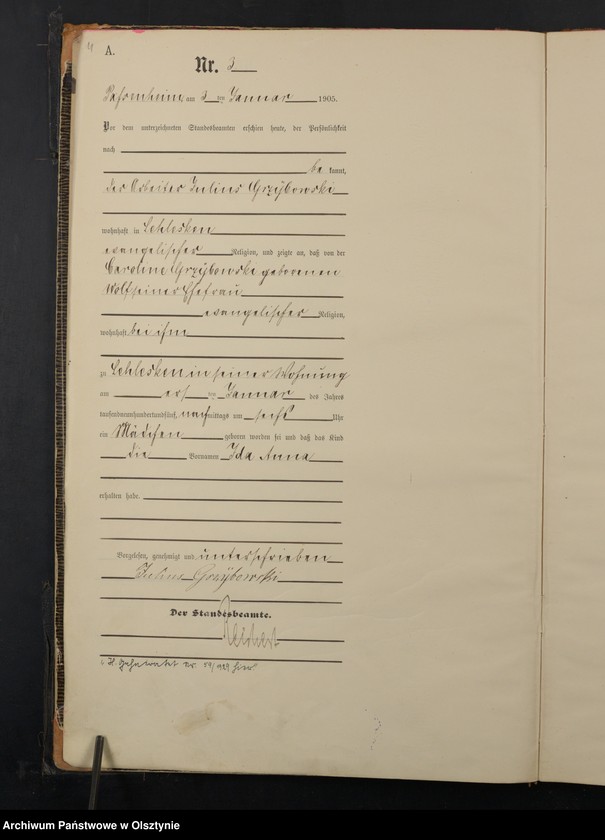 A.
Nr. 3
Passenheim, am 3 ten Januar 1905.
Vor dem unterzeichneten Standesbeamten erschien heute, der Persönlichkeit
nach
be kannt,
der Arbeiter Julius Grzybowski
wohnhaft in Schlesken
evangelischer Religion, und zeigte an, daß von der
Caroline Grzybowski geborenen
Wolf seiner Ehefrau
evangelischer Religion,
wohnhaft bei ihm
zu Schlesken in seiner Wohnung
am ersten Januar des Jahres
tausendneunhundertundfünf, nachmittags um sechs Uhr
ein Mädchen geboren worden sei und daß das Kind
die Vornamen Ida Anna
erhalten habe.
Vorgelesen, genehmigt und unterschrieben
Julius Grzybowski
Der Standesbeamte.
Archiwum Państwowe w Olsztynie